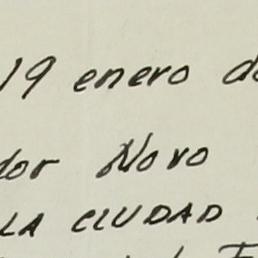 19 enero de
dor Novo
LA CIUDAD